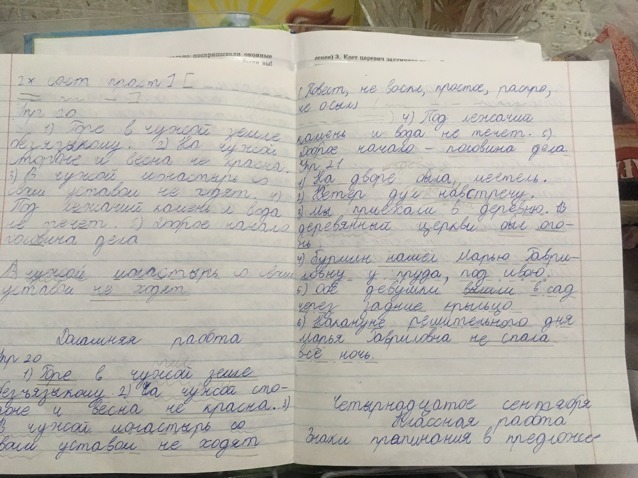 2х сост прост] [
Упр 20
1) Горе в чужой земле
безъязыкому. 2) На чужой
стороне и весна не красна.
3) В чужой монастырь со
своим уставом не ходят.
Под лежачий камень и вода
не течет. 5) Доброе начало
половина дела
В чужой монастырь со своим
уставом не ходят
Домашняя работа
Упр 20
1) Горе в чужой земле
безъязыкому. 2) На чужой сто-
роне и весна не красна. 3)
В чужой монастырь со
своим уставом не ходят
(Повест, не воскл, простое, распро,
не осл)
4) Под лежачий
камень и вода не течет. 5)
Доброе начало - половина дела
Упр 21
1) На дворе была, метель.
2) Ветер дул навстречу.
3) Мы приехали в деревню. В
деревянный церкви был ого-
нь
4) Бурмин нашёл Марью Гаври-
ловну у пруда, под ивою.
5) Обе девушки вышли в сад
через задние крыльцо
6) Накануне решительного дня
Марья Гавриловна не спала
всё ночь.
Четырнадцатое сентября
Классная работа
Знаки препинания в предложе